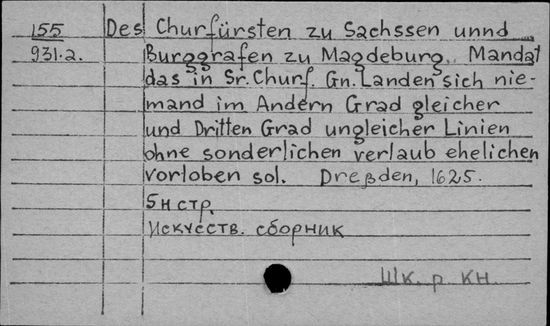 155 Des Churfürsten zu Sachssen unnd
931.2. Burggrafen zu Magdeburg. Mandat
das in Sr. Churf. Gn. Landen sich nie-
mand im Andern Grad gleicher
und Dritten Grad ungleicher Linien
ohne sonderlichen verlaub ehelichen
vorloben sol. Dreßden, 1625.
5н стр.
Искусств. сборник
Шк. р. кн.